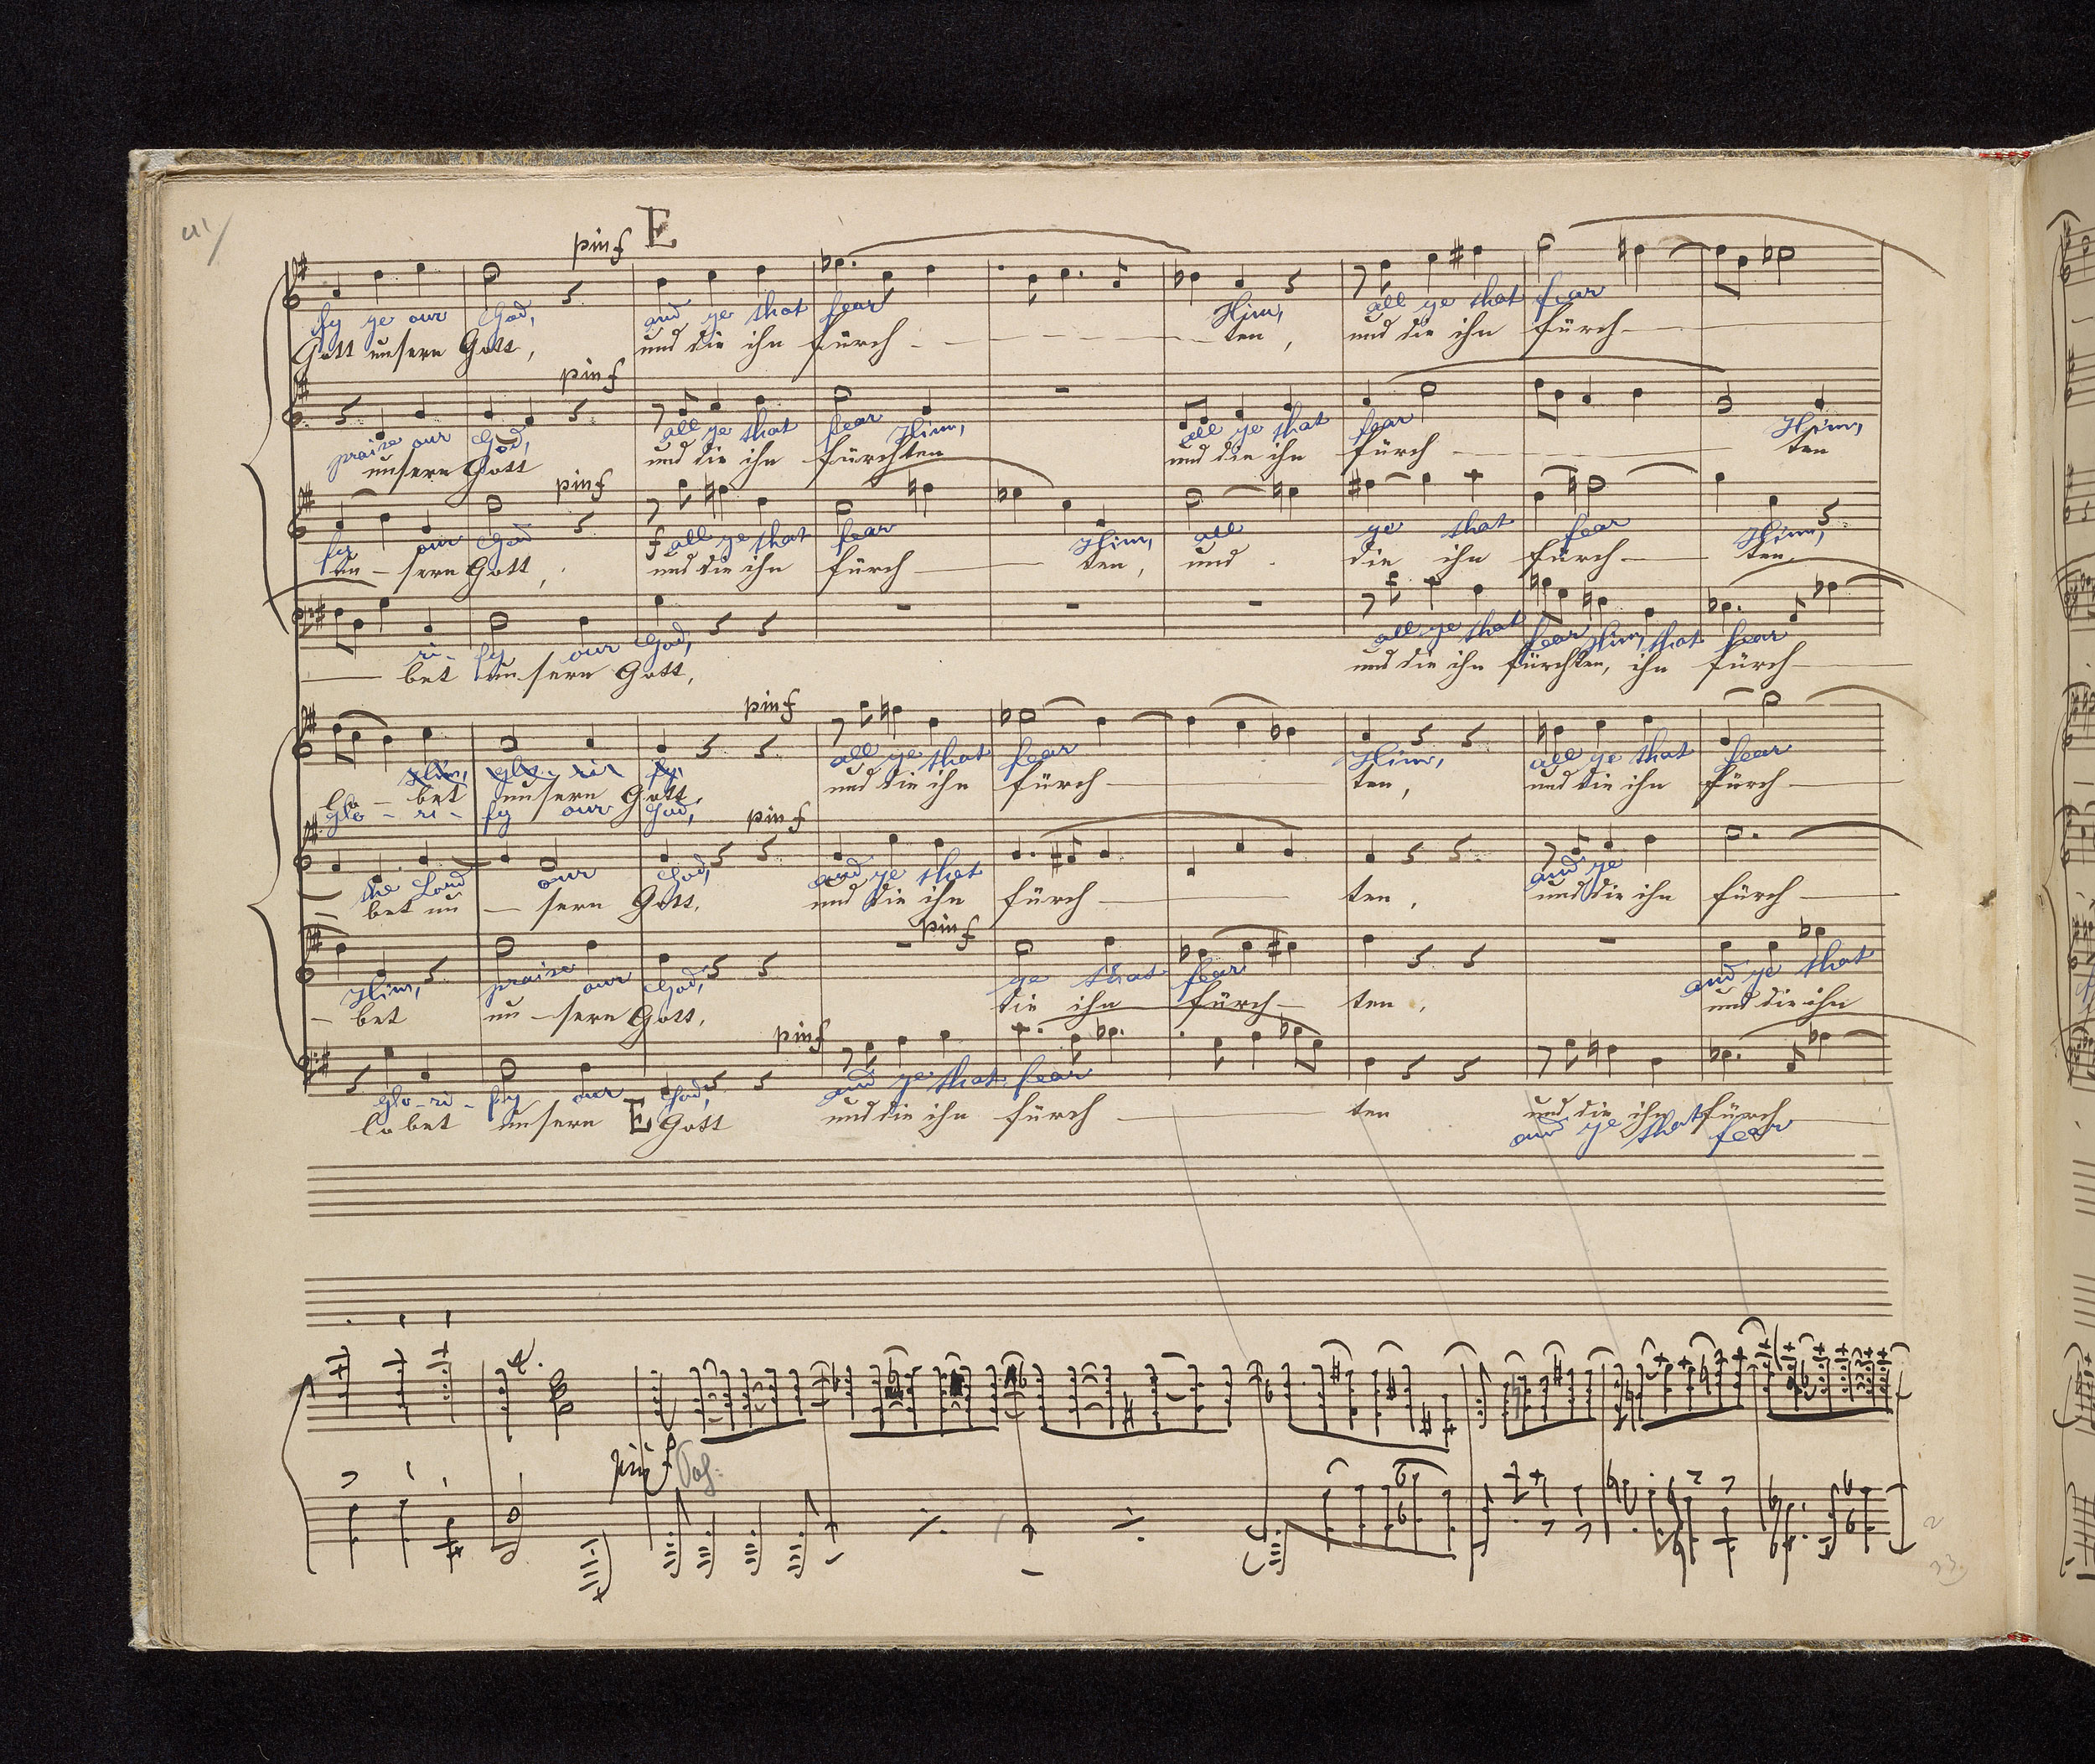 E
più f
fy ye our God, and ye that fear Him, all ye that fear
Gott unsern Gott, und die ihn fürch - ten, und die ihn fürch -
più f
praise our God, all ye that fear Him, all ye that fear Him,
unsern Gott und die ihn fürchten und die ihn fürch - ten
più f
fy our God f all ye that fear Him, all ye that fear Him,
un - sern Gott, und die ihn fürch - ten, und die ihn fürch - ten,
ri - fy our God, all ye that fear Him, that fear
bet unsern Gott, und die ihn fürchten, ihn fürch -
più f
Him, glo - ri fy, all ye that fear Him, all ye that fear
lo - bet unsern Gott, und die ihn fürch - ten, und die ihn fürch -
glo - ri - fy our God,
più f
the Lord our God, and ye that and ye
bet un - sern Gott, und die ihn fürch - ten, und die ihn fürch -
più f
Him, praise our God, ye that fear and ye that
bet un - sern Gott, die ihn fürch - ten, und die ihn
più f
glo - ri - fy our God, and ye that fear
lobet unsern E Gott und die ihn fürch - ten und die ihn fürch -
and ye that fear
più f
33.